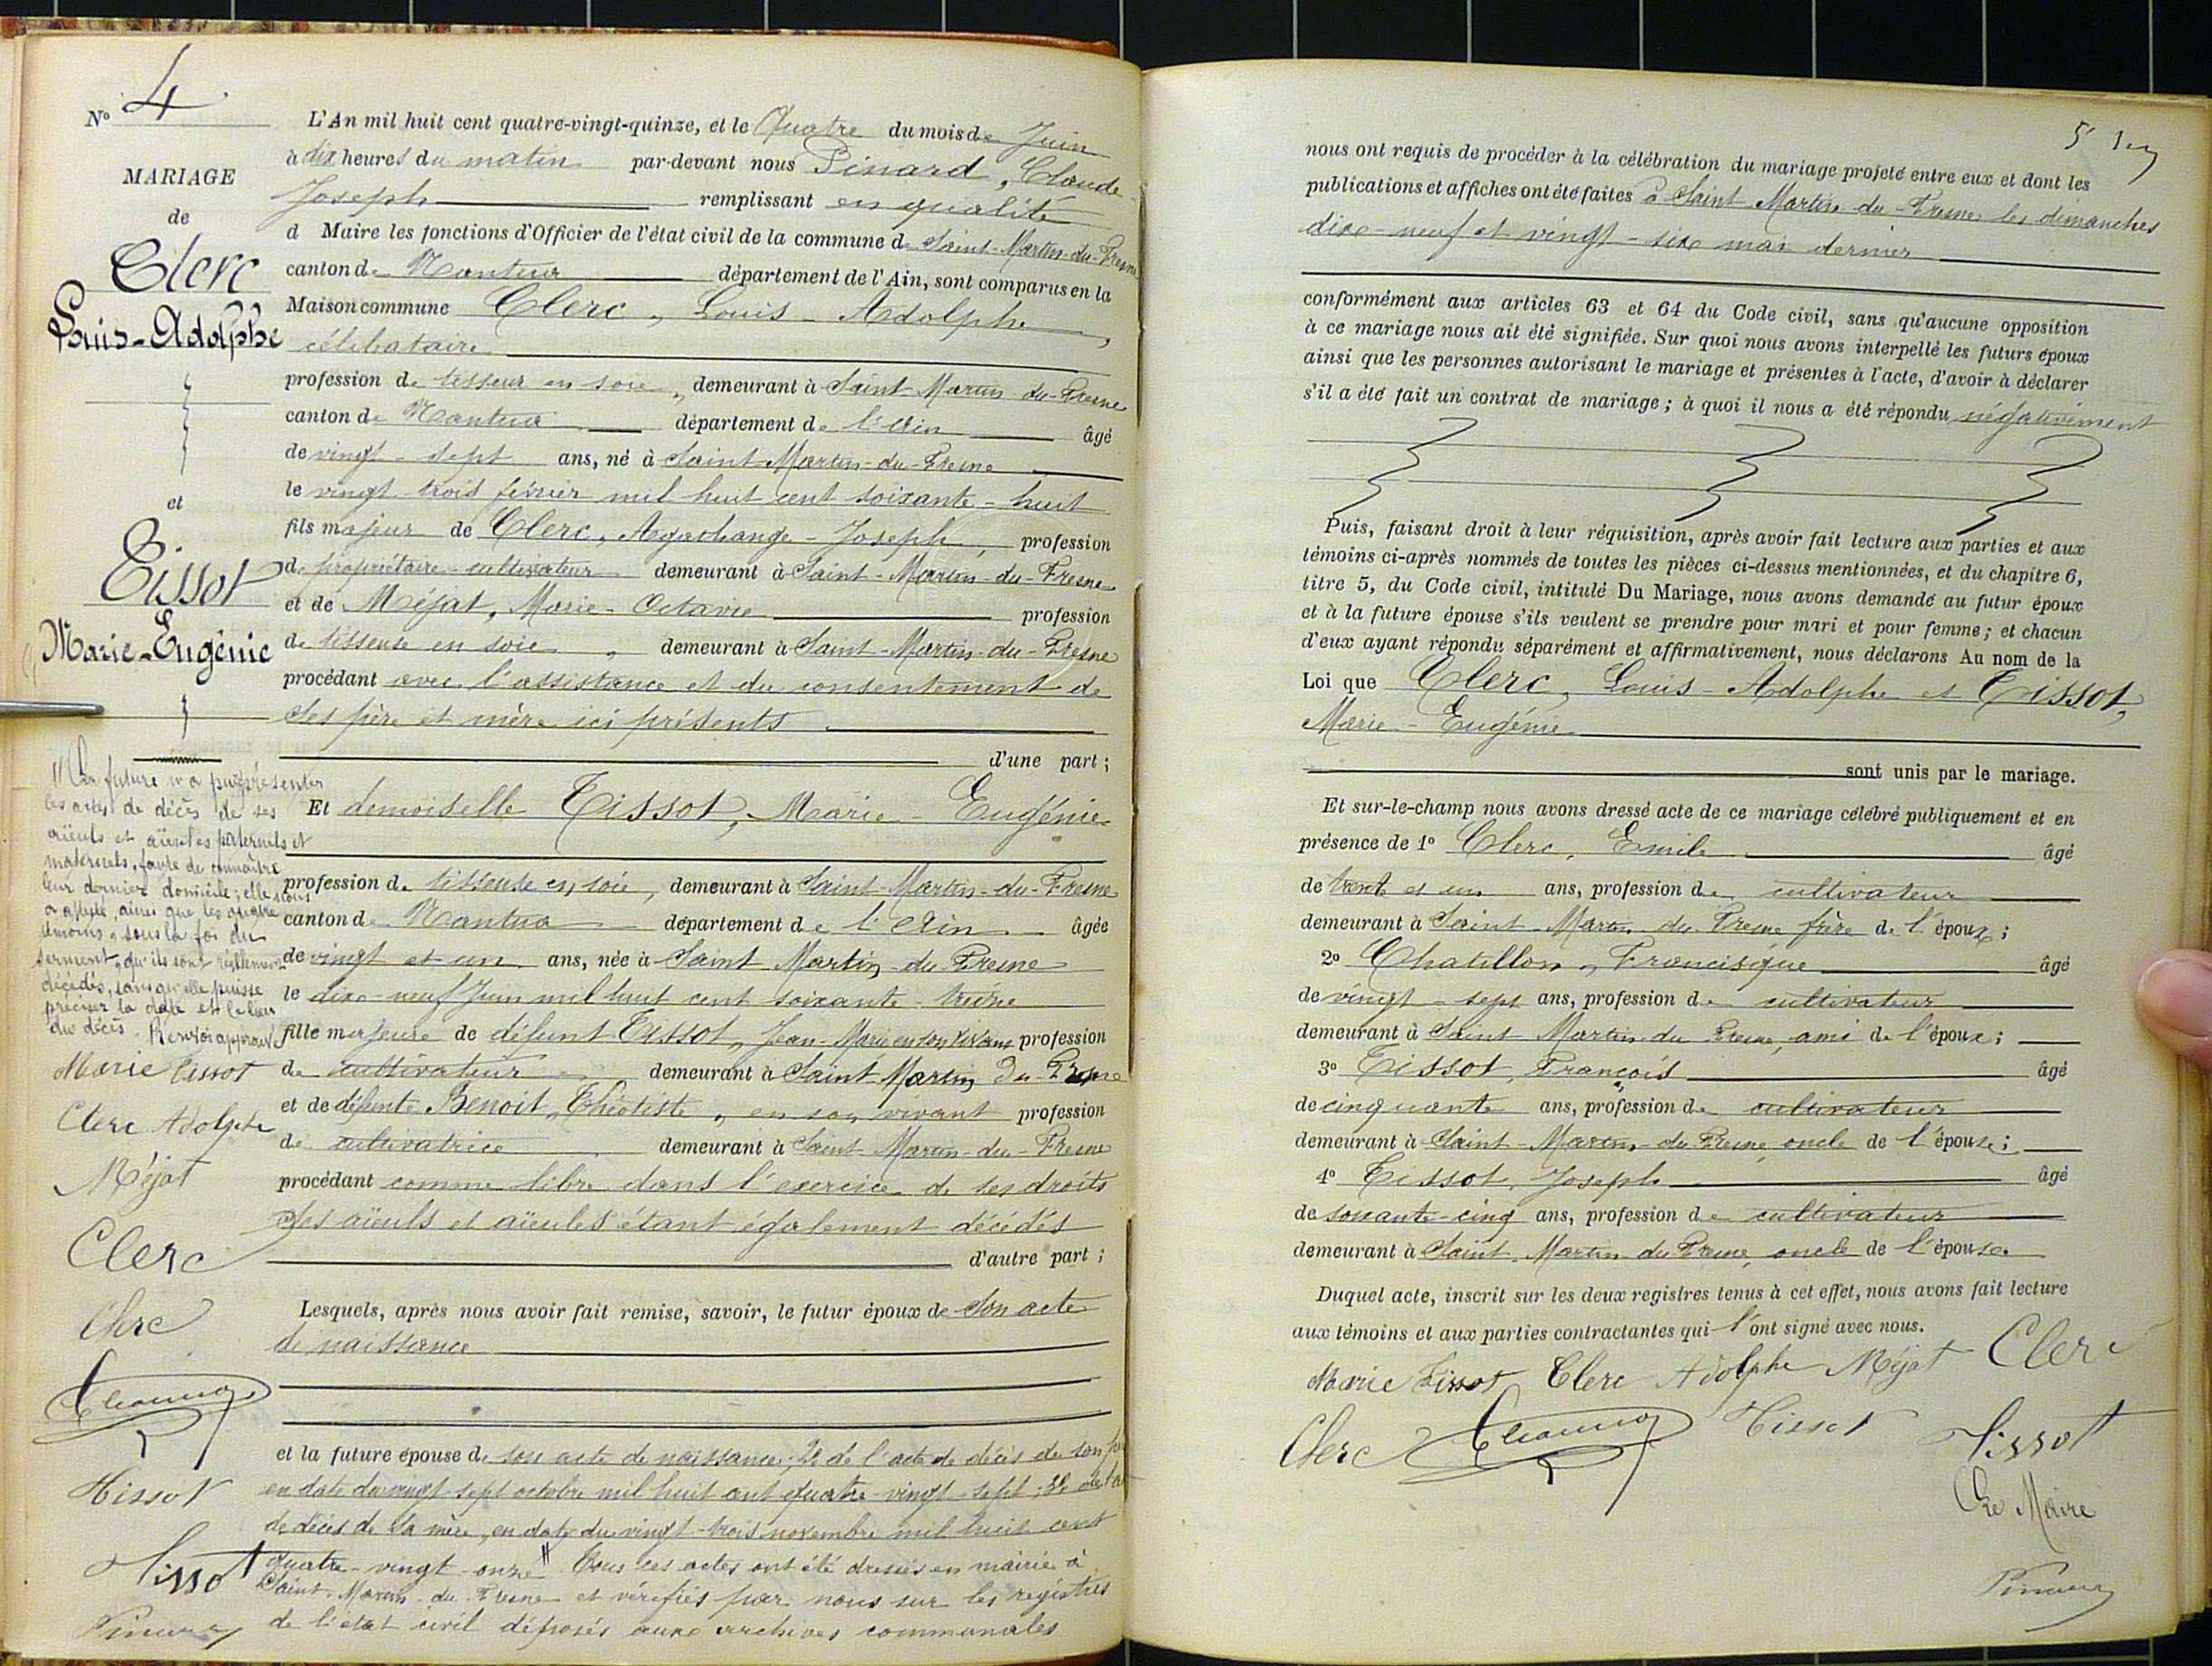 N° 4
MARIAGE
de
Clerc
Louis-Adolphe
et
Tissot
Marie-Eugénie
L'An mil huit cent quatre-vingt-quinze, et le Quatre du mois de Juin
à dix heures du matin par-devant nous Pinard, Claude
Joseph remplissant en qualité
d Maire les fonctions d'Officier de l'état civil de la commune de Saint-Martin-du-Fresne
canton de Nantua département de l'Ain, sont comparus en la
Maison commune Clerc, Louis-Adolphe,
célibataire
profession de tisseur en soie, demeurant à Saint-Martin-du-Fresne
canton de Nantua département de l'Ain âgé
de vingt-sept ans, né à Saint-Martin-du-Fresne
le vingt-trois février mil huit cent soixante-huit
fils majeur de Clerc, Argachange-Joseph, profession
de propriétaire-cultivateur demeurant à Saint-Martin-du-Fresne
et de Méjat, Marie-Octavie profession
de tisseuse en soie, demeurant à Saint-Martin-du-Fresne
procédant avec l'assistance et du consentement de
ses père et mère ici présents
d'une part;
Et demoiselle Tissot, Marie-Eugénie
profession de tisseuse en soie, demeurant à Saint-Martin-du-Fresne
canton de Nantua département de l'Ain âgée
de vingt et un ans, née à Saint-Martin-du-Fresne
le dix-neuf Juin mil huit cent soixante-treize
fille majeure de défunt Tissot, Jean-Marie en son vivant profession
de cultivateur demeurant à Saint Martin du Fresne
et de défunte Benoit, Théotiste, en son vivant profession
de cultivatrice demeurant à Saint-Martin-du-Fresne
procédant comme libre dans l'exercice de ses droits
ses aïeuls et aïeules étant également décédés
d'autre part;
Lesquels, après nous avoir fait remise, savoir, le futur époux de son acte
de naissance
et la future épouse de son acte de naissance; 2° de l'acte de décès de son père
en date du vingt-sept octobre mil huit cent quatre-vingt-sept; 3° de l'acte
de décès de sa mère, en date du vingt-trois novembre mil huit cent
quatre-vingt-onze " Tous ces actes ont été dressés en mairie à
Saint-Martin-du-Fresne et vérifiés par nous sur les registres
de l'état civil déposés aux archives communales
" La future n'a pu présenter
les actes de décès de ses
aïeuls et aïeules paternels et
maternels, faute de connaître
leur dernier domicile; elle nous
a attesté, ainsi que les quatre
témoins, sous la foi du
serment, qu'ils sont réellement
décédés, sans qu'elle puisse
préciser la date et le lieu
du décès. Renvoi approuvé
Marie Tissot
Clerc Adolphe
Méjat
Clerc
Clerc
Tissot
Tissot
Pinard
5
nous ont requis de procéder à la célébration du mariage projeté entre eux et dont les
publications et affiches ont été faites à Saint Martin-du-Fresne les dimanches
dix-neuf et vingt-six mai dernier
conformément aux articles 63 et 64 du Code civil, sans qu'aucune opposition
à ce mariage nous ait été signifiée. Sur quoi nous avons interpellé les futurs époux
ainsi que les personnes autorisant le mariage et présentes à l'acte, d'avoir à déclarer
s'il a été fait un contrat de mariage; à quoi il nous a été répondu négativement
Puis, faisant droit à leur réquisition, après avoir fait lecture aux parties et aux
témoins ci-après nommés de toutes les pièces ci-dessus mentionnées, et du chapitre 6,
titre 5, du Code civil, intitulé Du Mariage, nous avons demandé au futur époux
et à la future épouse s'ils veulent se prendre pour mari et pour femme; et chacun
d'eux ayant répondu séparément et affirmativement, nous déclarons Au nom de la
Loi que Clerc, Louis-Adolphe et Tissot,
Marie-Eugénie
sont unis par le mariage.
Et sur-le-champ nous avons dressé acte de ce mariage célébré publiquement et en
présence de 1° Clerc, Emile âgé
de trente et un ans, profession de cultivateur
demeurant à Saint-Martin du Fresne frère de l'époux;
2° Chatillon, Francisque âgé
de vingt-sept ans, profession de cultivateur
demeurant à Saint Martin-du Fresne, ami de l'époux;
3° Tissot, François âgé
de cinquante ans, profession de cultivateur
demeurant à Saint-Martin-du-Fresne, oncle de l'épouse;
4° Tissot, Joseph âgé
de soixante-cinq ans, profession de cultivateur
demeurant à Saint-Martin du Fresne, oncle de l'épouse.
Duquel acte, inscrit sur les deux registres tenus à cet effet, nous avons fait lecture
aux témoins et aux parties contractantes qui l'ont signé avec nous.
Marie Tissot Clerc Adolphe Méjat Clerc
Clerc Tissot Tissot
Le Maire
Pinard